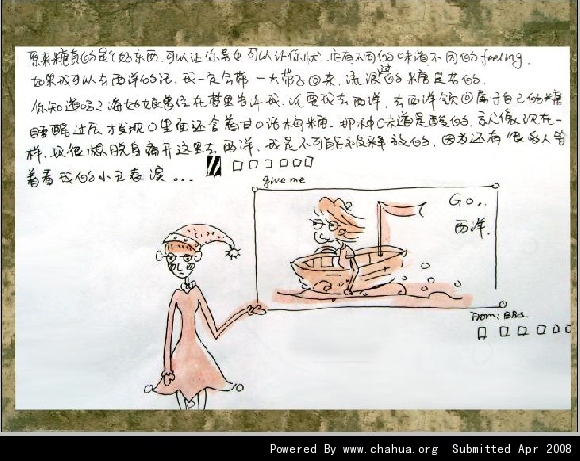 原来糖真的是个好东西,可以让你哭也可以让你快,它有不同的味道不同的feeling.
如果我可以去西洋的话,我一定会带一大带子回来,流浪过的糖是苦的.
你知道吗?海姑娘男住在梦里告诉我,还要我去西洋,去西洋领回属于自己的糖
睡醒过后,才发现口里面还含着
味道是酸的,就像现在一
样,很想脱身离开这里去西洋,我是不可能不被释放的,因为还有很多人会
看着我的小丑表演...
give me
Go..
西洋.
From: BBS.
Powered By www.chahua.org Submitted Apr 2008